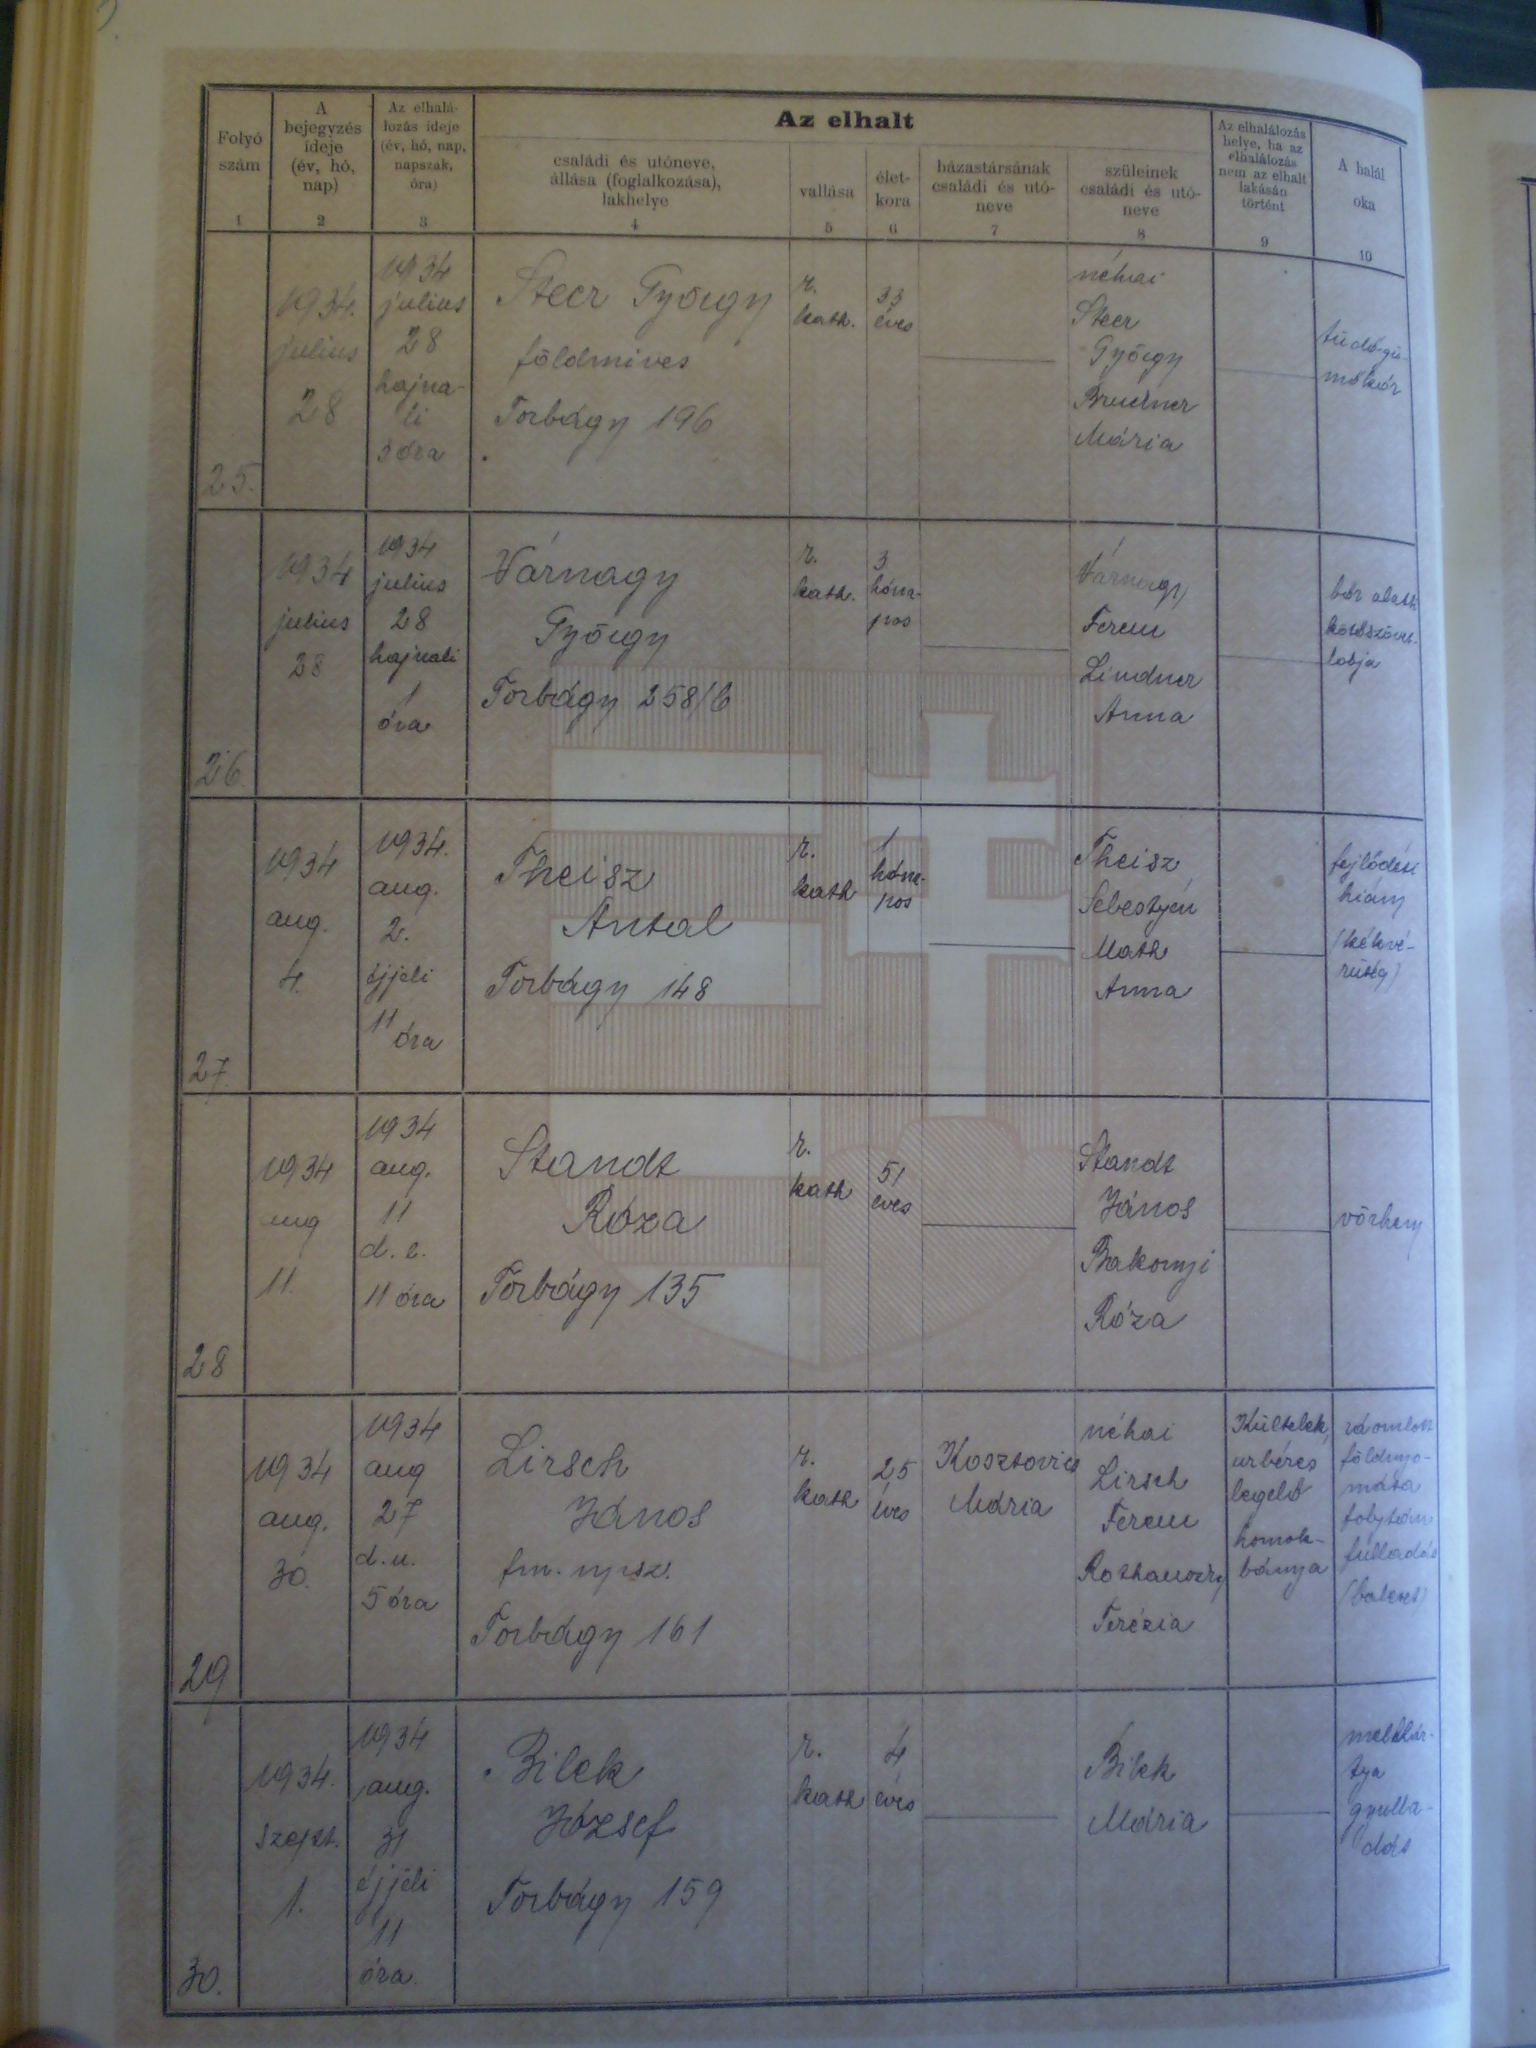 Folyó
szám
1
A
bejegyzés
ideje
(év, hó,
nap)
2
Az elhalá-
lozás ideje
(év, hó, nap,
napszak,
óra)
3
Az elhalt
családi és utóneve,
állása (foglalkozása),
lakhelye
4
vallása
5
élet-
kora
6
házastársának
családi és utó-
neve
7
szüleinek
családi és utó-
neve
8
Az elhalálozás
helye, ha az
elhalálozás
nem az elhalt
lakásán
történt
9
A halál
oka
10
25.
1934.
julius
28
1934
julius
28
hajna-
li
3 óra
Steer György
földmives
Torbágy 196
r.
kath.
33
éves
néhai
Steer
György
Mária
tüdőgü-
mőkór
26.
1934
julius
28
1934
julius
28
hajnali
1
óra
Várnagy
György
Torbágy 258/b
r.
kath.
3
hóna-
pos
Várnagy
Ferenc
Lindner
Anna
bőr alatti
kötőszövet-
lobja
27.
1934
aug.
4.
1934.
aug.
2.
éjjeli
11 óra
Theisz
Antal
Torbágy 148
r.
kath
1
hóna-
pos
Theisz
Sebestyén
Math
Anna
fejlődési
hiány
(kékvé-
rüség)
28
1934
aug
11.
1934
aug.
11
d. e.
11 óra
Standt
Róza
Torbágy 135
r.
kath
51
éves
Standt
János
Bakonyi
Róza
vörheny
29
1934
aug.
30.
1934
aug
27
d. u.
5 óra
Lirsch
János
fm. npsz.
Torbágy 161
r.
kath
25
éves
Kosztovics
Mária
néhai
Lirsch
Ferenc
Terézia
Kültelek,
urbéres
legelő
homok-
bánya
ráomlott
földnyo-
mása
folytán
fulladás
(baleset)
30.
1934.
szept.
1.
1934
aug.
31
éjjeli
11
óra.
Bilek
József
Torbágy 159
r.
kath
4
éves
Bilek
Mária
mellhár-
tya
gyulla-
dás